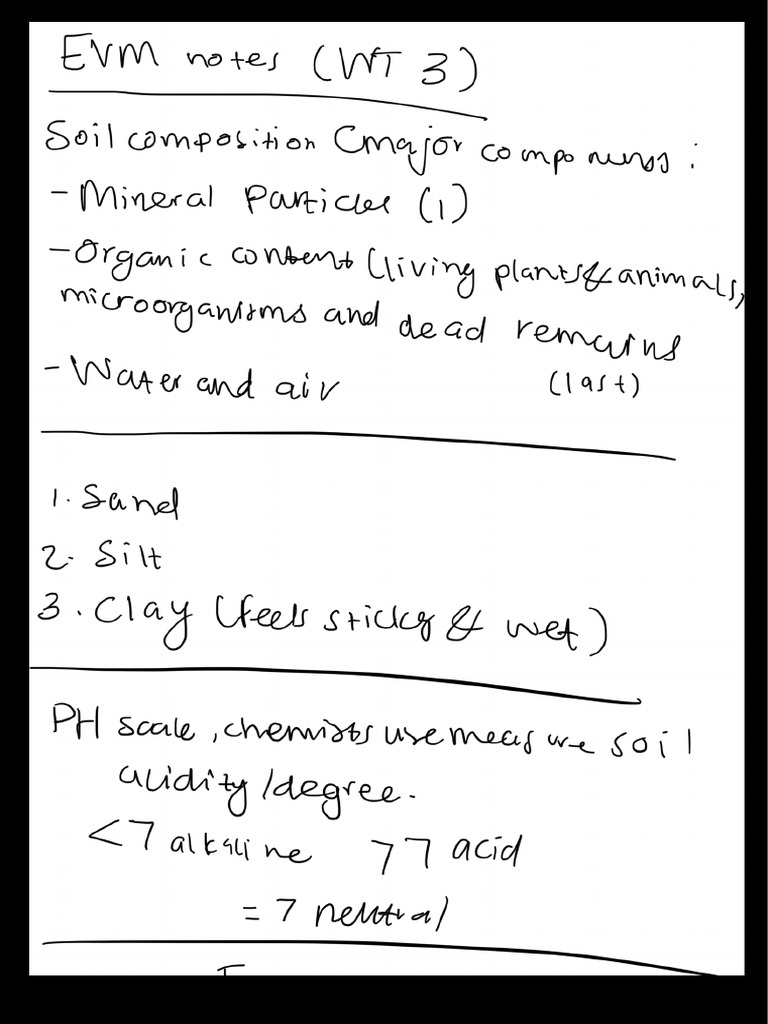 EVM notes (WT 3)
Soil composition (major components:
- Mineral Particles (1)
- Organic content (living plants & animals,
microorganisms and dead remains
- Water and air (last)
1. Sand
2. Silt
3. Clay (feels sticky & wet)
PH scale, chemists use measure soil
acidity/degree.
<7 alkaline >7 acid
= 7 neutral